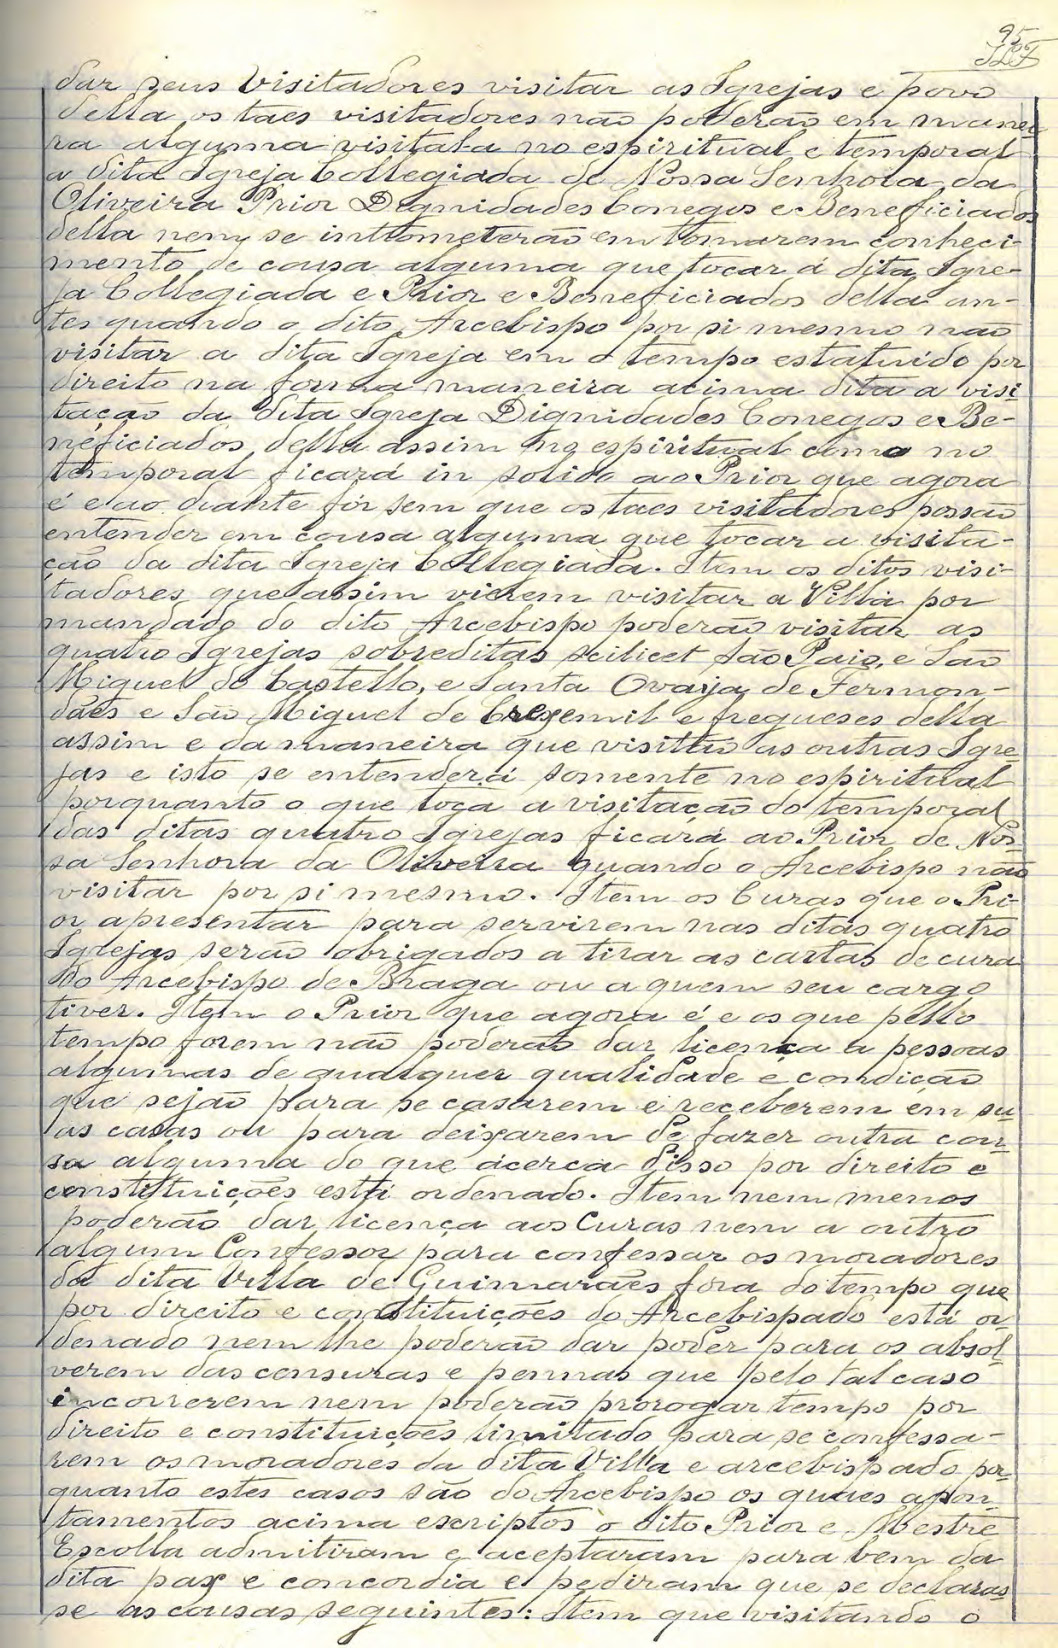 95
dar seus Visitadores visitar as Igrejas e povo
della os taes visitadores não poderão em manei-
ra alguma visitala no espiritual e temporal
a dita Igreja Collegiada de Nossa Senhora da
Oliveira Prior Dignidades Conegos e Beneficiados
della nem se intrometerão em tomarem conheci-
mento de cousa alguma que tocar á dita Igre-
ja Collegiada e Prior e Beneficiados della an-
tes quando o dito Arcebispo por si mesmo não
visitar a dita Igreja em o tempo estatuido por
direito na forma maneira acima dita a visi
tação da dita Igreja Dignidades Conegos e Be-
neficiados della assim no espiritual como no
temporal ficará in solido ao Prior que agora
é e ao diante fôr sem que os taes visitadores possão
entender em cousa alguma que tocar a visita-
ção da dita Igreja Collegiada. Item os ditos visi-
tadores que assim vierem visitar a Villa por
mandado do dito Arcebispo poderão visitar as
quatro Igrejas sobreditas scilicet São Paio, e São
Miguel do Castello, e Santa Ovaija de Fermon-
dães e São Miguel de Creixemil e fregueses della
assim e da maneira que visitão as outras Igre-
jas e isto se entenderá somente no espiritual
porquanto o que toca a visitação do temporal
das ditas quatro Igrejas ficará ao Prior de Nos-
sa Senhora da Oliveira quando o Arcebispo não
visitar por si mesmo. Item os Curas que o Pri-
or apresentar para servirem nas ditas quatro
Igrejas serão obrigados a tirar as cartas de cura
do Arcebispo de Braga ou a quem seu cargo
tiver. Item o Prior que agora é e os que pello
tempo forem não poderão dar licença a pessoas
algumas de qualquer qualidade e condição
que sejão para se casarem e receberem em su-
as casas ou para deixarem de fazer outra cou-
sa alguma do que ácerca disso por direito e
constituições está ordenado. Item nem menos
poderão dar licença aos Curas nem a outro
algum Confessor para confessar os moradores
da dita Villa de Guimarães fora do tempo que
por direito e constituições do Arcebispado está or-
denado nem lhe poderão dar poder para os absol-
verem das censuras e pennas que pelo tal caso
incorrerem nem poderão prorogar tempo por
direito e constituições limitado para se confessa-
rem os moradores da dita Villa e arcebispado por-
quanto estes casos são do Arcebispo os quaes apon-
tamentos acima escriptos o dito Prior e Mestre
Escolla admitiram e aceptaram para bem da
dita pax e concordia e pediram que se declaras-
se as cousas seguintes: Item que visitando o